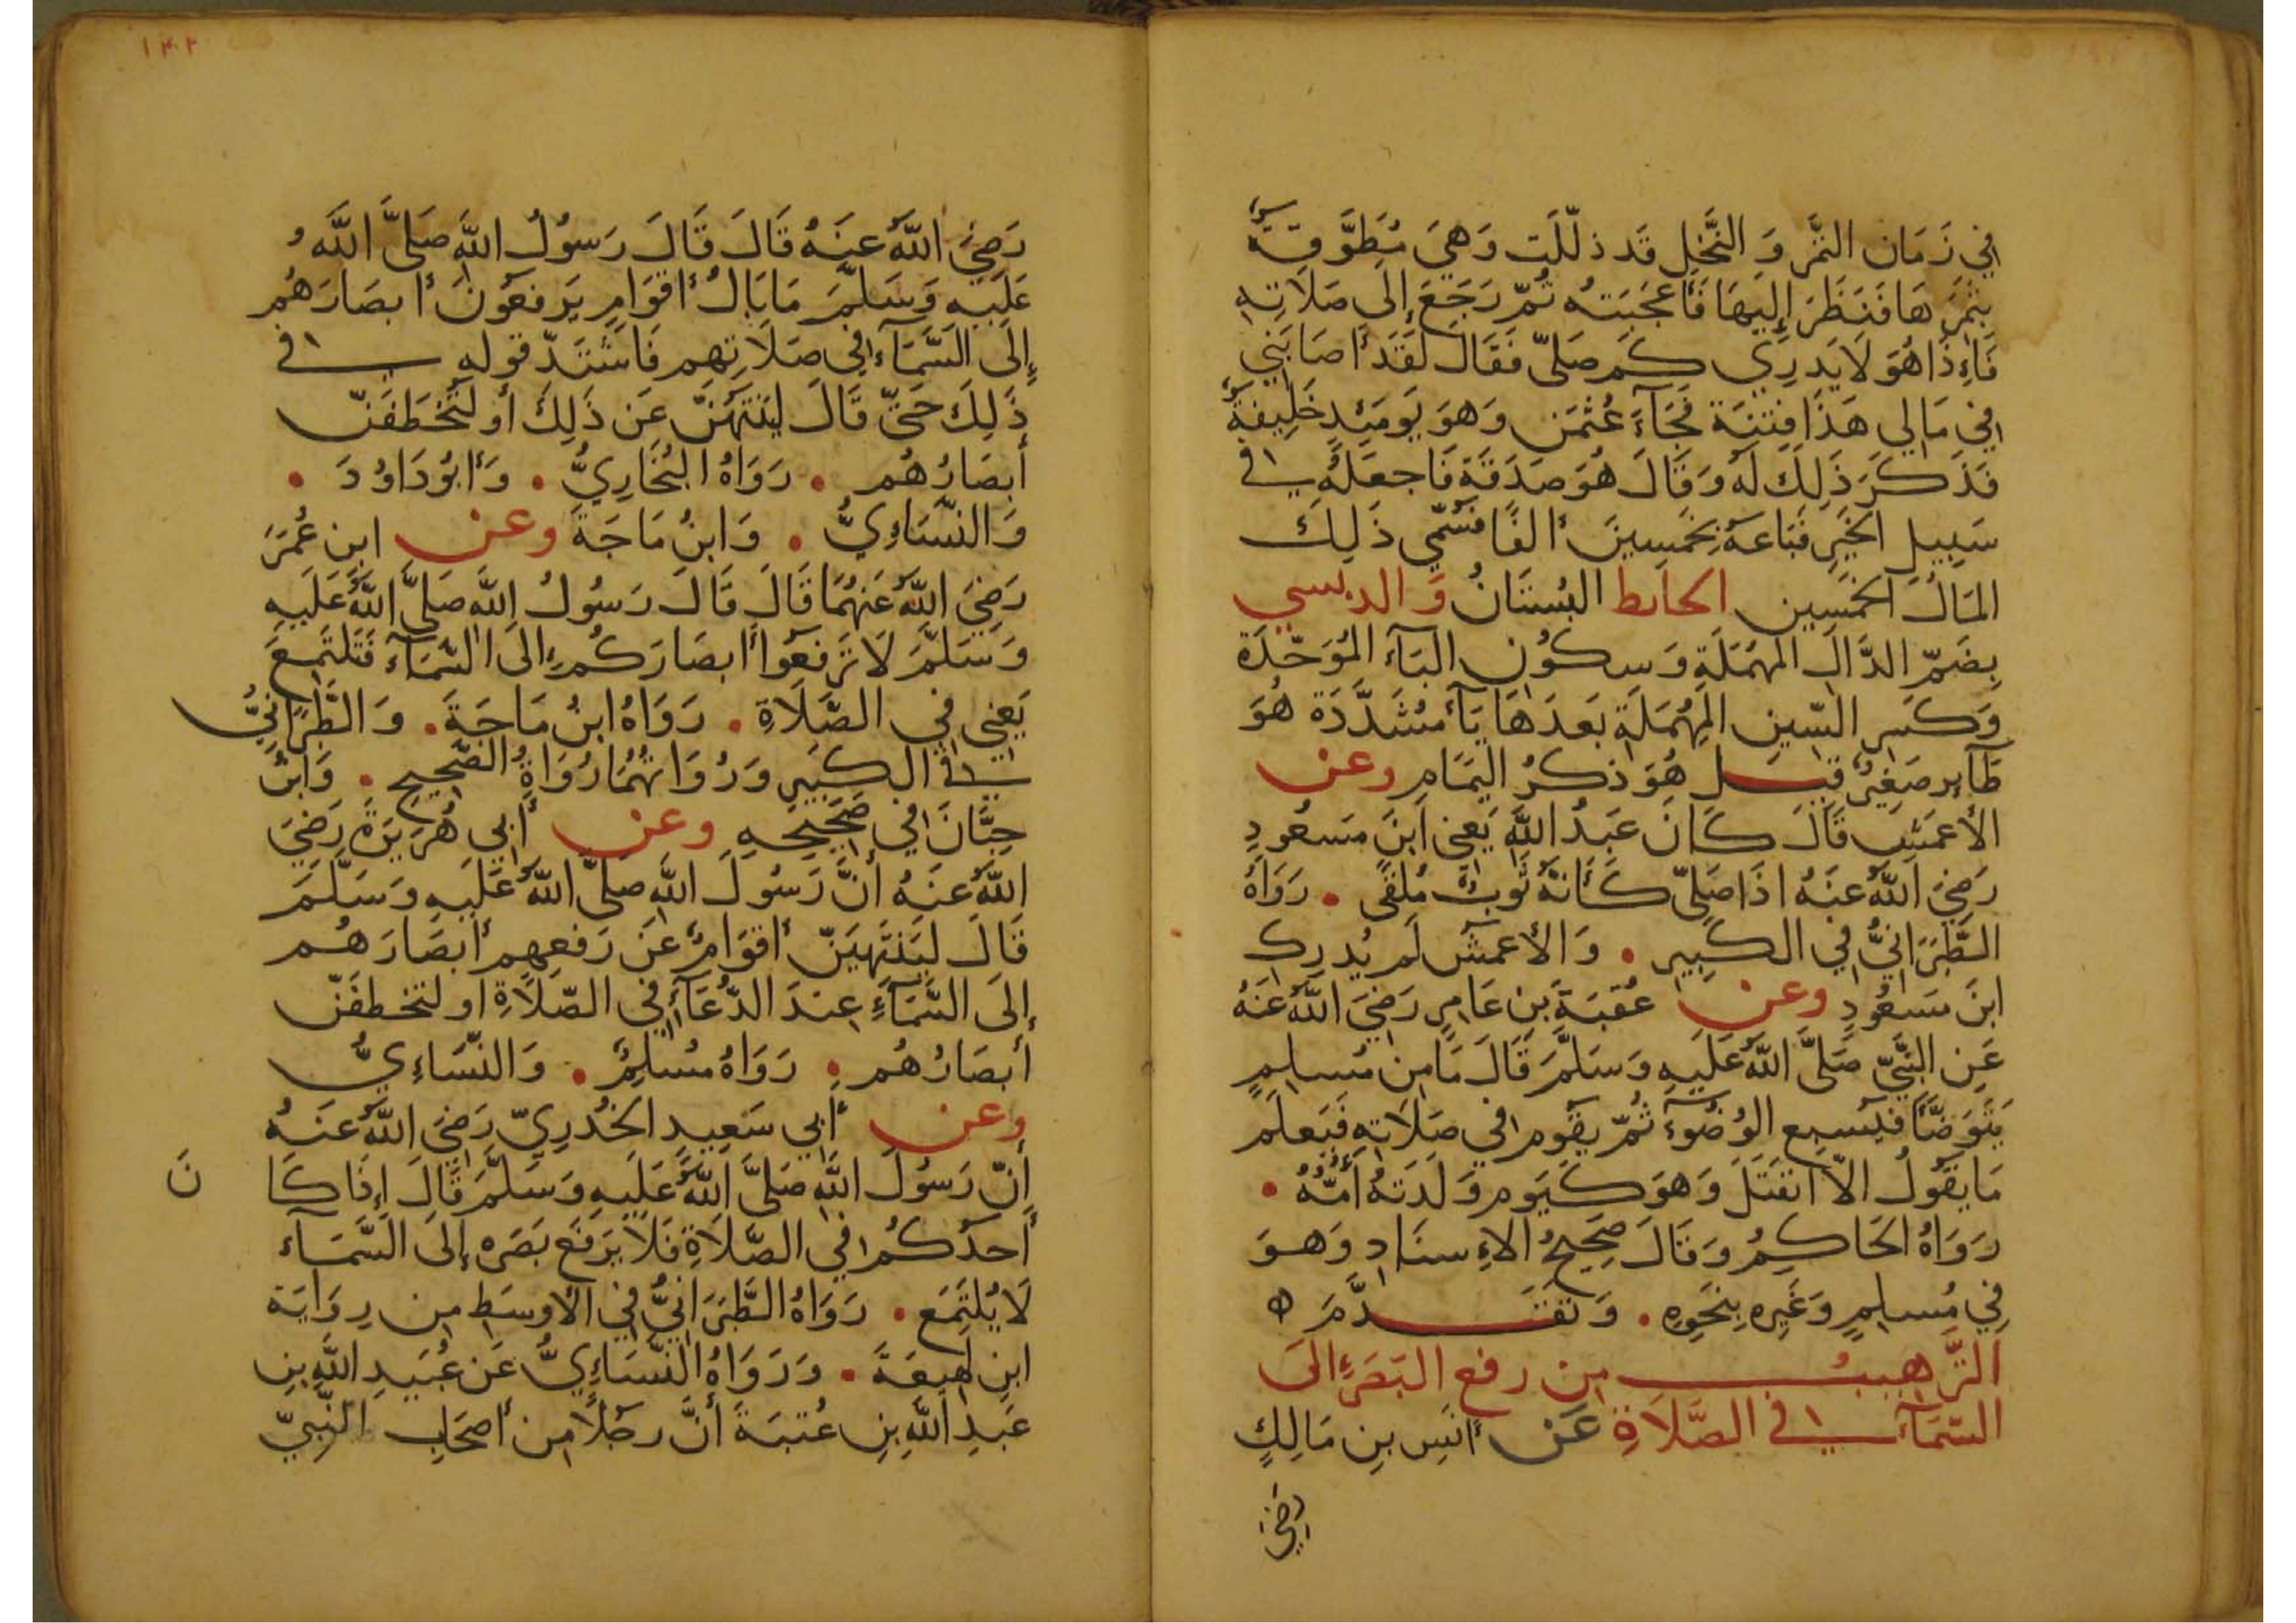 في زَمَان الثمَّر وَ النَّخلِ قَد ذلّلَت وَهيَ مُطَوَّقَةٌ
بثمَرِهَا فَنَظَرَ إليهَا فَأعجَبَتهُ ثُمّ رَجَعَ إلَى صَلَاتِهِ
فَإِذَا هُوَ لَا يَدرِي كَم صَلّى فَقَالَ لَقَد أصَابَتنِي
في مَالِي هَذَا فِتنَة فَجَآءَ عُثمَن وَهوَ يَومَئِدٍ خَلِيفَةٌ
فَذَكَرَ ذَلِكَ لَهُ وَقَالَ هُوَ صَدَقَة فَاجعَلهُ في
سَبِيلِ الخَيرِ فَبَاعَهُ بِخَمسِينَ ألفًا فَسُمِّي ذَلِكَ
المَالُ الخَمسِين الحايط البُستَانُ وَالدبسي
بِضَمّ الدَّالِ المُهمَلَةِ وَسكُونِ البَآءِ المُوَحّدَة
وَكَسرِ السّينِ المُهمَلَةِ بَعدَهَا يَآء مُشَدَّدَة هُوَ
طَآير صَغِيرٌ قيل هُوَ ذكرُ اليَمَامِ وعن
الأعمَش قَالَ كَانَ عَبدُ اللهِ يَعنِي ابنَ مَسعُودٍ
رَضِيَ اللهُ عَنهُ اذَا صَلّى كَأنّهُ ثَوبٌ مُلقًى . رَوَاهُ
الطّبَرَانِيُّ فِي الكَبِيرِ . وَالأعمشُ لَم يُدرِك
ابنَ مَسعُودٍ وعن عُقبَةَ بنِ عَامِرٍ رَضِيَ اللهُ عَنهُ
عَنِ النَّبيِّ صَلَّى اللهُ عَلَيهِ وَسَلَّمَ قَالَ مَا مِن مُسلِمٍ
يَتَوَضَّأ فيُسبِغ الوُضُوءَ ثُمّ يَقُوم في صَلَاتِهِ فَيَعلَم
مَا يَقُولُ الاّ انفَتَلَ وَهوَ كَيَومِ وَلَدَتهُ أُمُّهُ .
رَوَاهُ الحَاكِمُ وَقَالَ صَحِيحُ الإِسنَادِ وَهوَ
فِي مُسلِمٍ وَغَيرِهِ بِنَحوِهِ . وَتَقَدَّمَ ه
التَّرهِيبُ مِن رفعِ البَصَرِ إلَى
السّمَآء في الصَّلَاةِ عَن أنَسِ بنِ مَالِكٍ
رَضِيَ
١٤٢
رَضِيَ اللهُ عَنهُ قَالَ قَالَ رَسُولُ اللهِ صَلَّى اللَّهُ
عَلَيهِ وَسَلَّمَ مَا بَالُ أقوَامٍ يَرفَعُونَ أبصَارَهُم
إِلَى السَّمَآءِ في صَلَاتِهِم فَاشتَدّ قوله في
ذَلِكَ حَتّى قَالَ ليَنتَهُنّ عَن ذَلِكَ أو لَتُخطَفَنّ
أبصَارُهُم . رَوَاهُ البُخَارِيُّ . وَأبُو دَاوُدَ .
وَالنّسَاءِيُّ . وَابنُ مَاجَة وعن ابنِ عُمَرَ
رَضِيَ اللهُ عَنهُمَا قَالَ قَالَ رَسُولُ اللهِ صَلَّى اللهُ عَلَيهِ
وَسَلَّمَ لَا تَرفَعُوا أبصَارَكُم إلَى السّمَآءِ فَتَلتَمِعَ
يَعنِي فِي الصّلَاةِ . رَوَاهُ ابنُ مَاجَةَ . وَالطَّبَرَانِيُّ
في الكَبِيرِ وَرُوَاتُهُمَا رُوَاةُ الصَّحِيحِ . وَابنُ
حِبَّانَ فِي صَحِيحِهِ وعن أبِي هُرَيرَةَ رَضِيَ
اللهُ عَنهُ أنَّ رَسُولَ اللهِ صَلَّى اللهُ عَلَيهِ وَسَلَّمَ
قَالَ لِيَنتَهِيَنّ أقوَامٌ عَن رَفعِهِم أبصَارَهُم
إلَى السَّمَآءِ عِندَ الدُّعَآءِ فِي الصّلَاةِ او لتخطفَنّ
أبصَارُهُم . رَوَاهُ مُسلِمٌ . وَالنّسَاءِيُّ
وعن أبِي سَعِيدٍ الخُدرِيّ رَضِيَ اللهُ عَنهُ
أنّ رَسُولَ اللهِ صَلَّى اللهُ عَلَيهِ وَسَلَّمَ قَالَ إِذَا كَا نَ
أحَدُكُم فِي الصَّلَاةِ فَلَا يَرفَع بَصَرَه إلَى السَّمَآء
لَا يُلتَمَع . رَوَاهُ الطَّبَرَانِيُّ فِي الأوسَطِ مِن رِوَايَة
ابنِ لَهِيعَةَ . وَرَوَاهُ النَّسَاءِيُّ عَن عُبَيدِ اللَّهِ بنِ
عَبدِ اللهِ بنِ عُتبَةَ أنَّ رَجُلًا مِن أصحَابِ النَّبِيّ